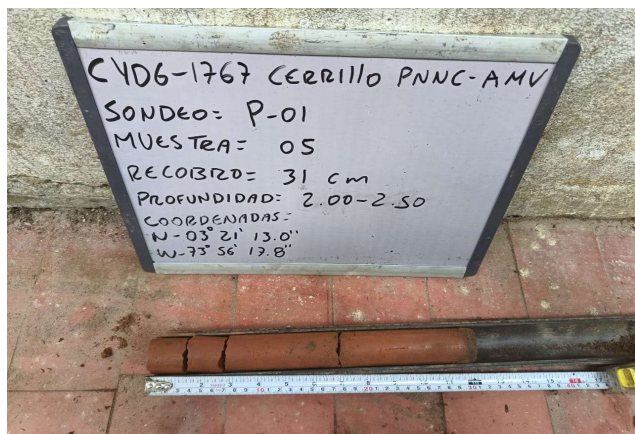 CYDG-1767 CERRILLO PNNC-AMV
SONDEO: P-01
MUESTRA= 05
RECOBRO= 31 cm
PROFUNDIDAD: 2.00-2.50
COORDENADAS:
N-03° 21' 13.0"
W-73° 56' 17.8"